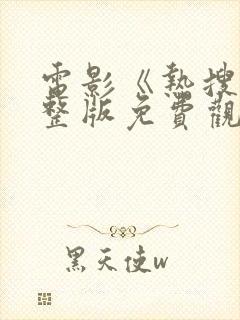 電影《熱搜
整版免費觀
黑天使w